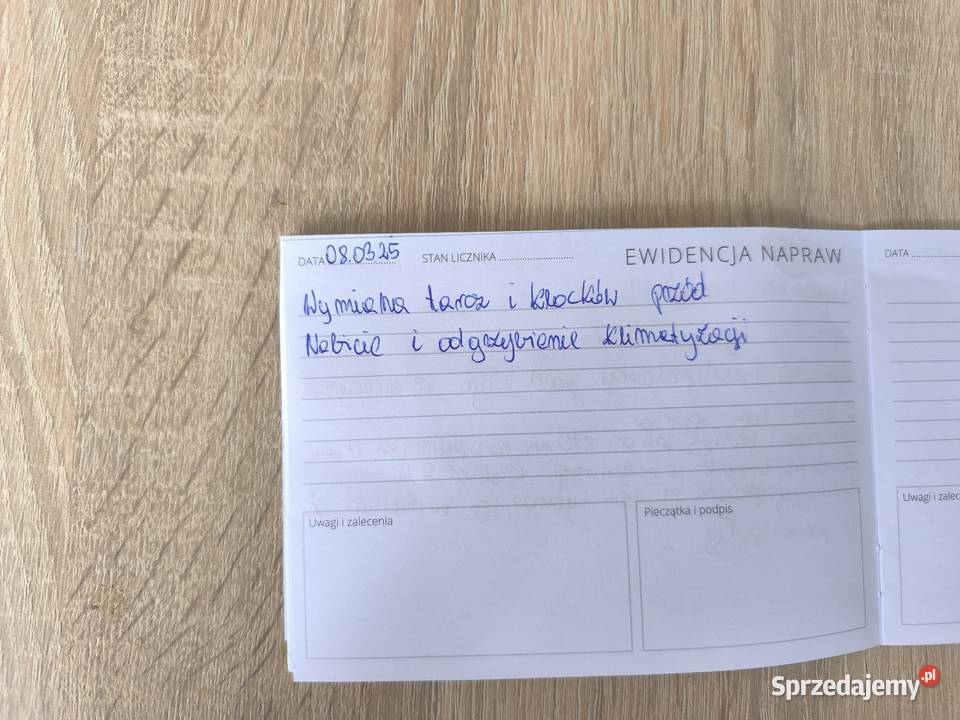 DATA 08.03.25 STAN LICZNIKA EWIDENCJA NAPRAW
DATA
Wymiana tarcz i klocków przód
Nabicie i odgrzybienie klimatyzacji
Uwagi i zalecenia
Pieczątka i podpis
Uwagi i zalec
Sprzedajemy.pl